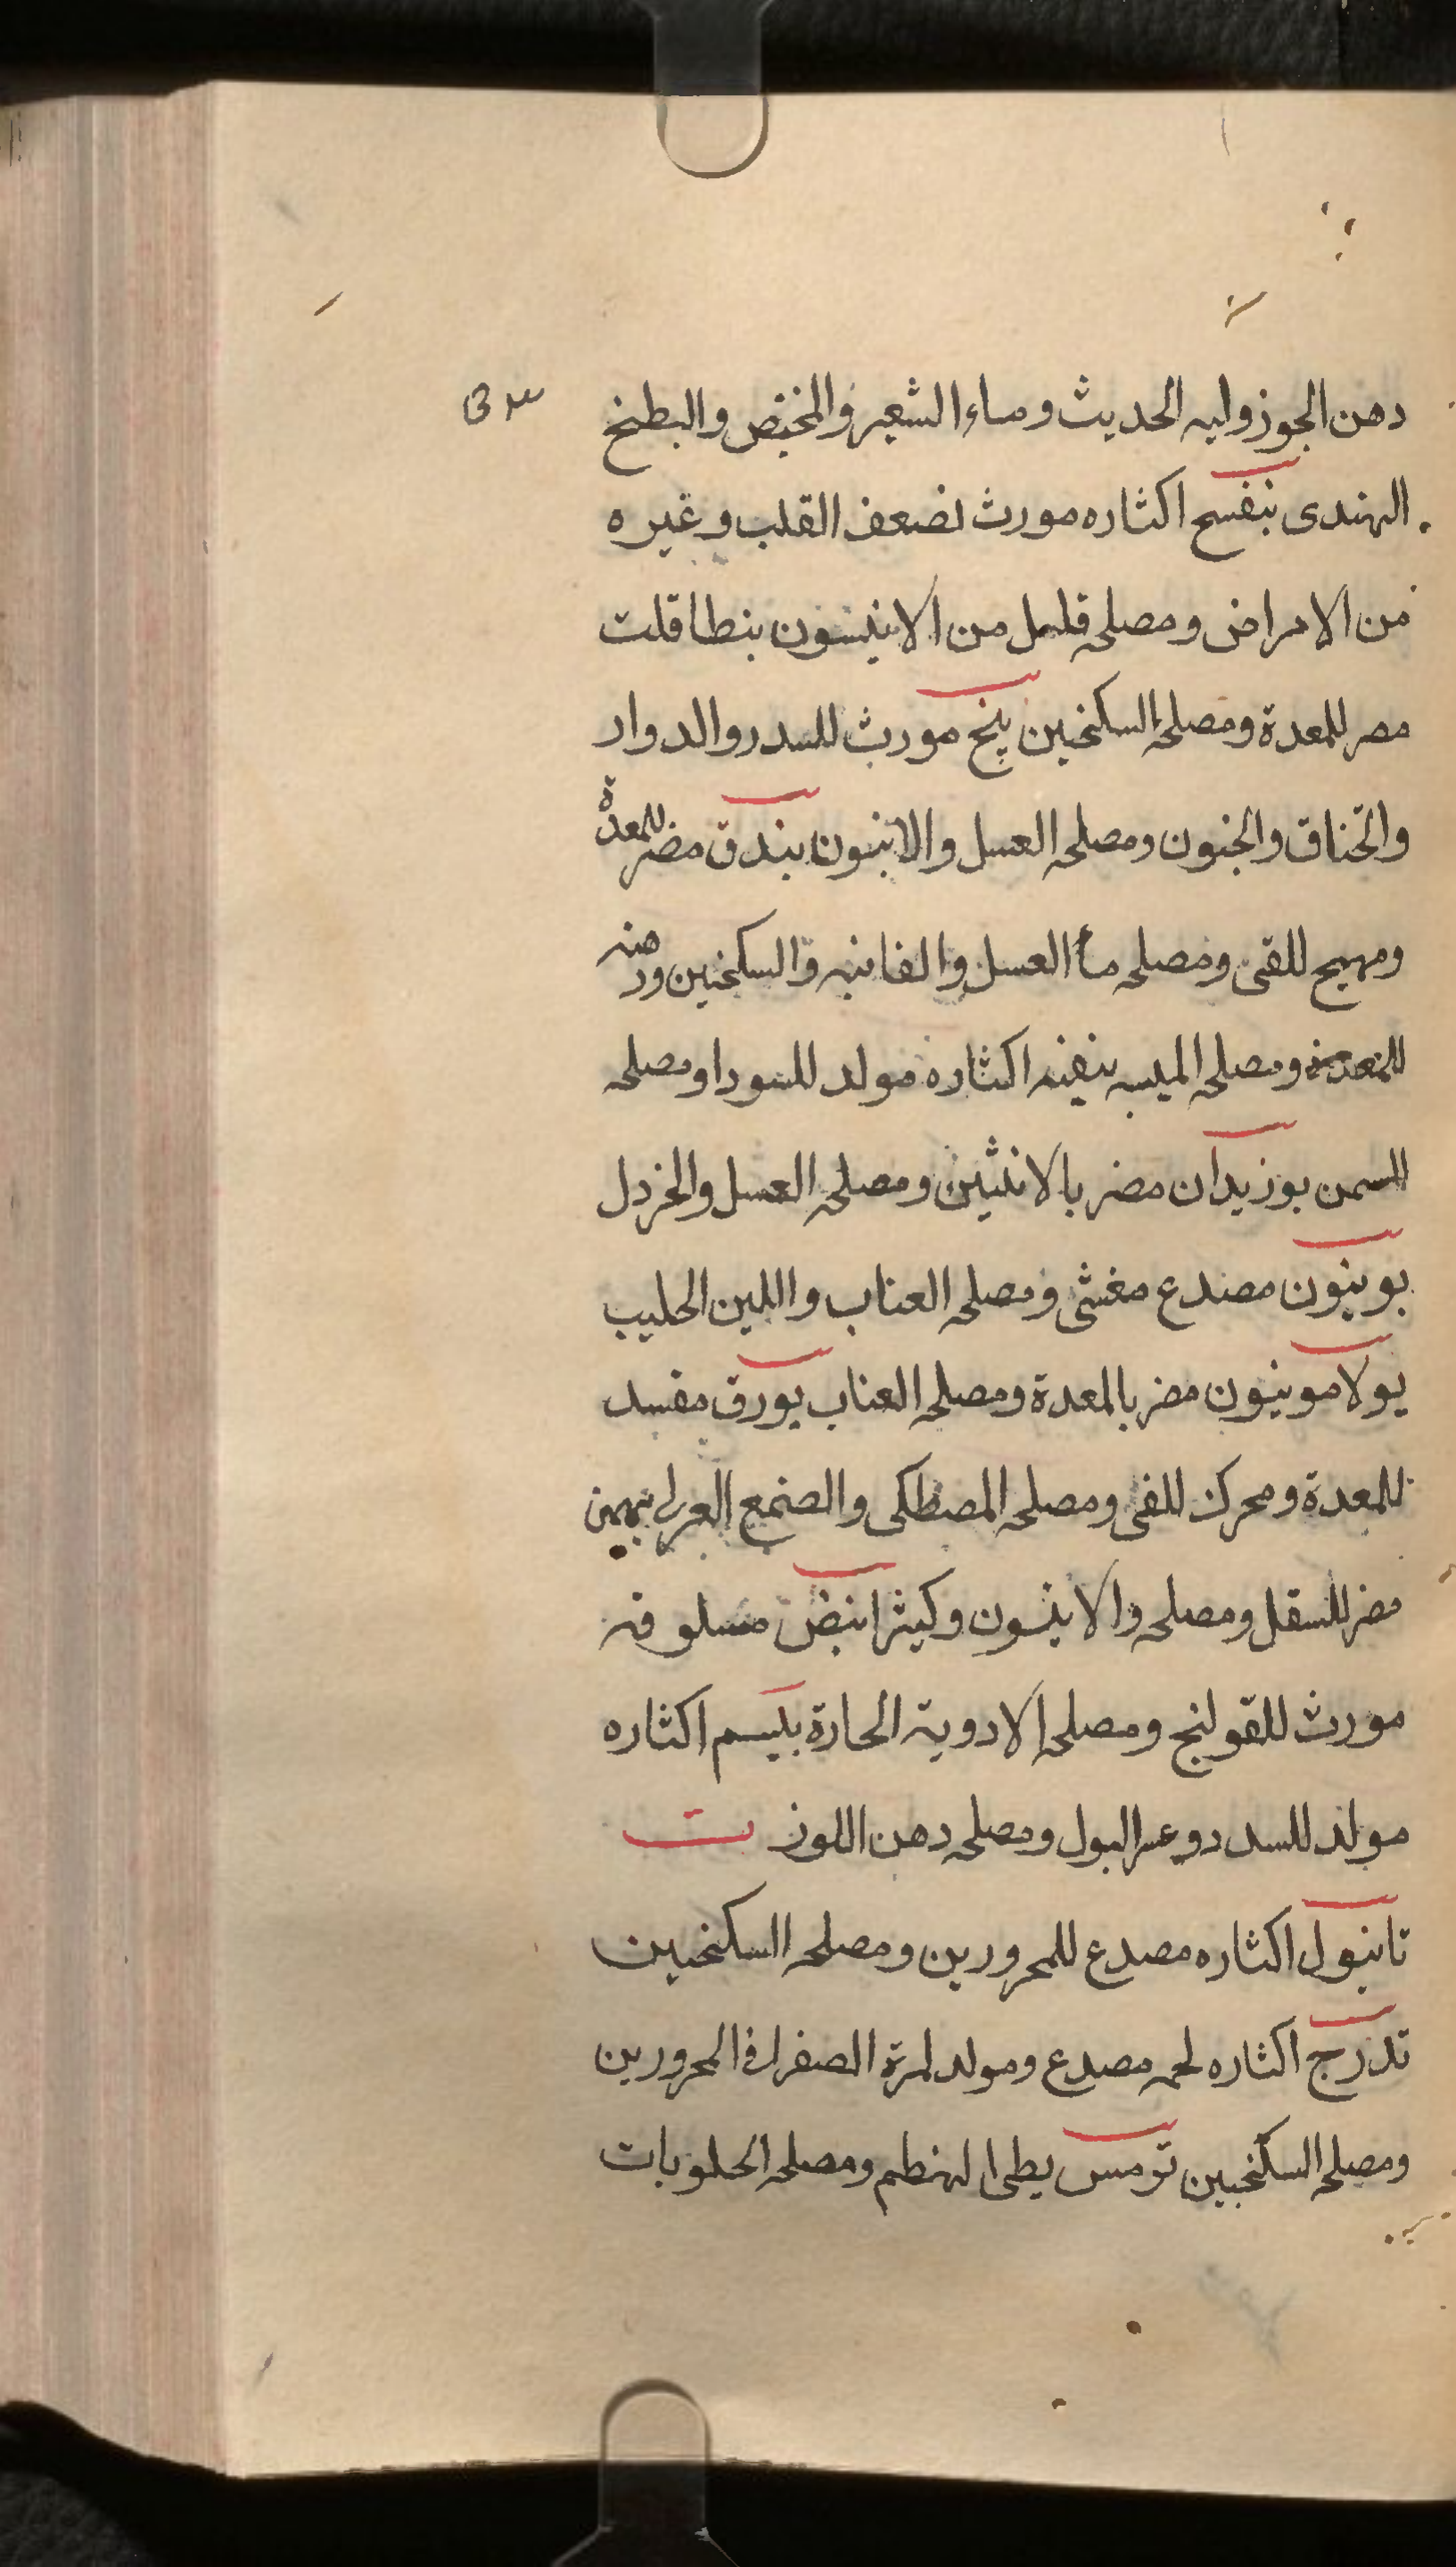 دهن الجوز ولبه الحديث وماء الشعير والمخيض والبطيخ
الهندى بنفسج اكثاره مورث لضعف القلب وغيره
من الامراض ومصلحه قليل من الانيسون بنطاقلت
مضر للمعدة ومصلحه السكنجبين بنج مورث للسدر والدوار
والخناق والجنون ومصلحه العسل والانيسون بندق مضر للمعدة
ومهيج للقى ومصلحه ماء العسل والفانيد والسكنجبين
ومصلحه الميبه اكثاره مولد للسودا ومصلحه
السمن بوزيدان مضر بالانثيين ومصلحه العسل والخردل
بونيون مصدع مغشى ومصلحه العناب واللبن الحليب
بولامونيون مضر بالمعدة ومصلحه العناب بورق مفسد
للمعدة ومحرك للقى ومصلحه المصطكى والصمغ العربى بهمن
مضر للسفل ومصلحه والانيسون وكثيرا بيض مسلوقه
مورث للقولنج ومصلحه الادوية الحارة اكثاره
مولد للسدد وعسر البول ومصلحه دهن اللوز ت
تانبول اكثاره مصدع للمحرورين ومصلحه السكنجبين
تدرج اكثاره لحمه مصدع ومولد لمرة الصفرا فى المحرورين
ومصلحه السكنجبين ترمس بطى الهضم ومصلحه الحلويات